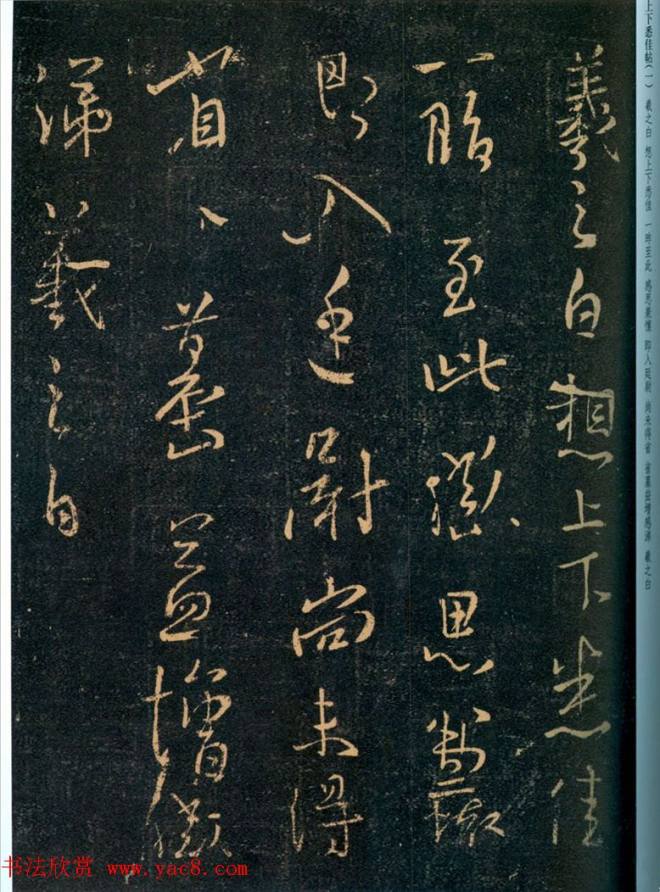 羲之白想上下悉佳
一昨至此感思
即入廷尉尚未得
省〻墓益增感
涕羲之白
上下悉佳帖(一) 羲之白 想上下悉佳 一昨至此 感思兼 即入廷尉 尚未得省 省墓益增感涕 羲之白
书法欣赏 www.yac8.com